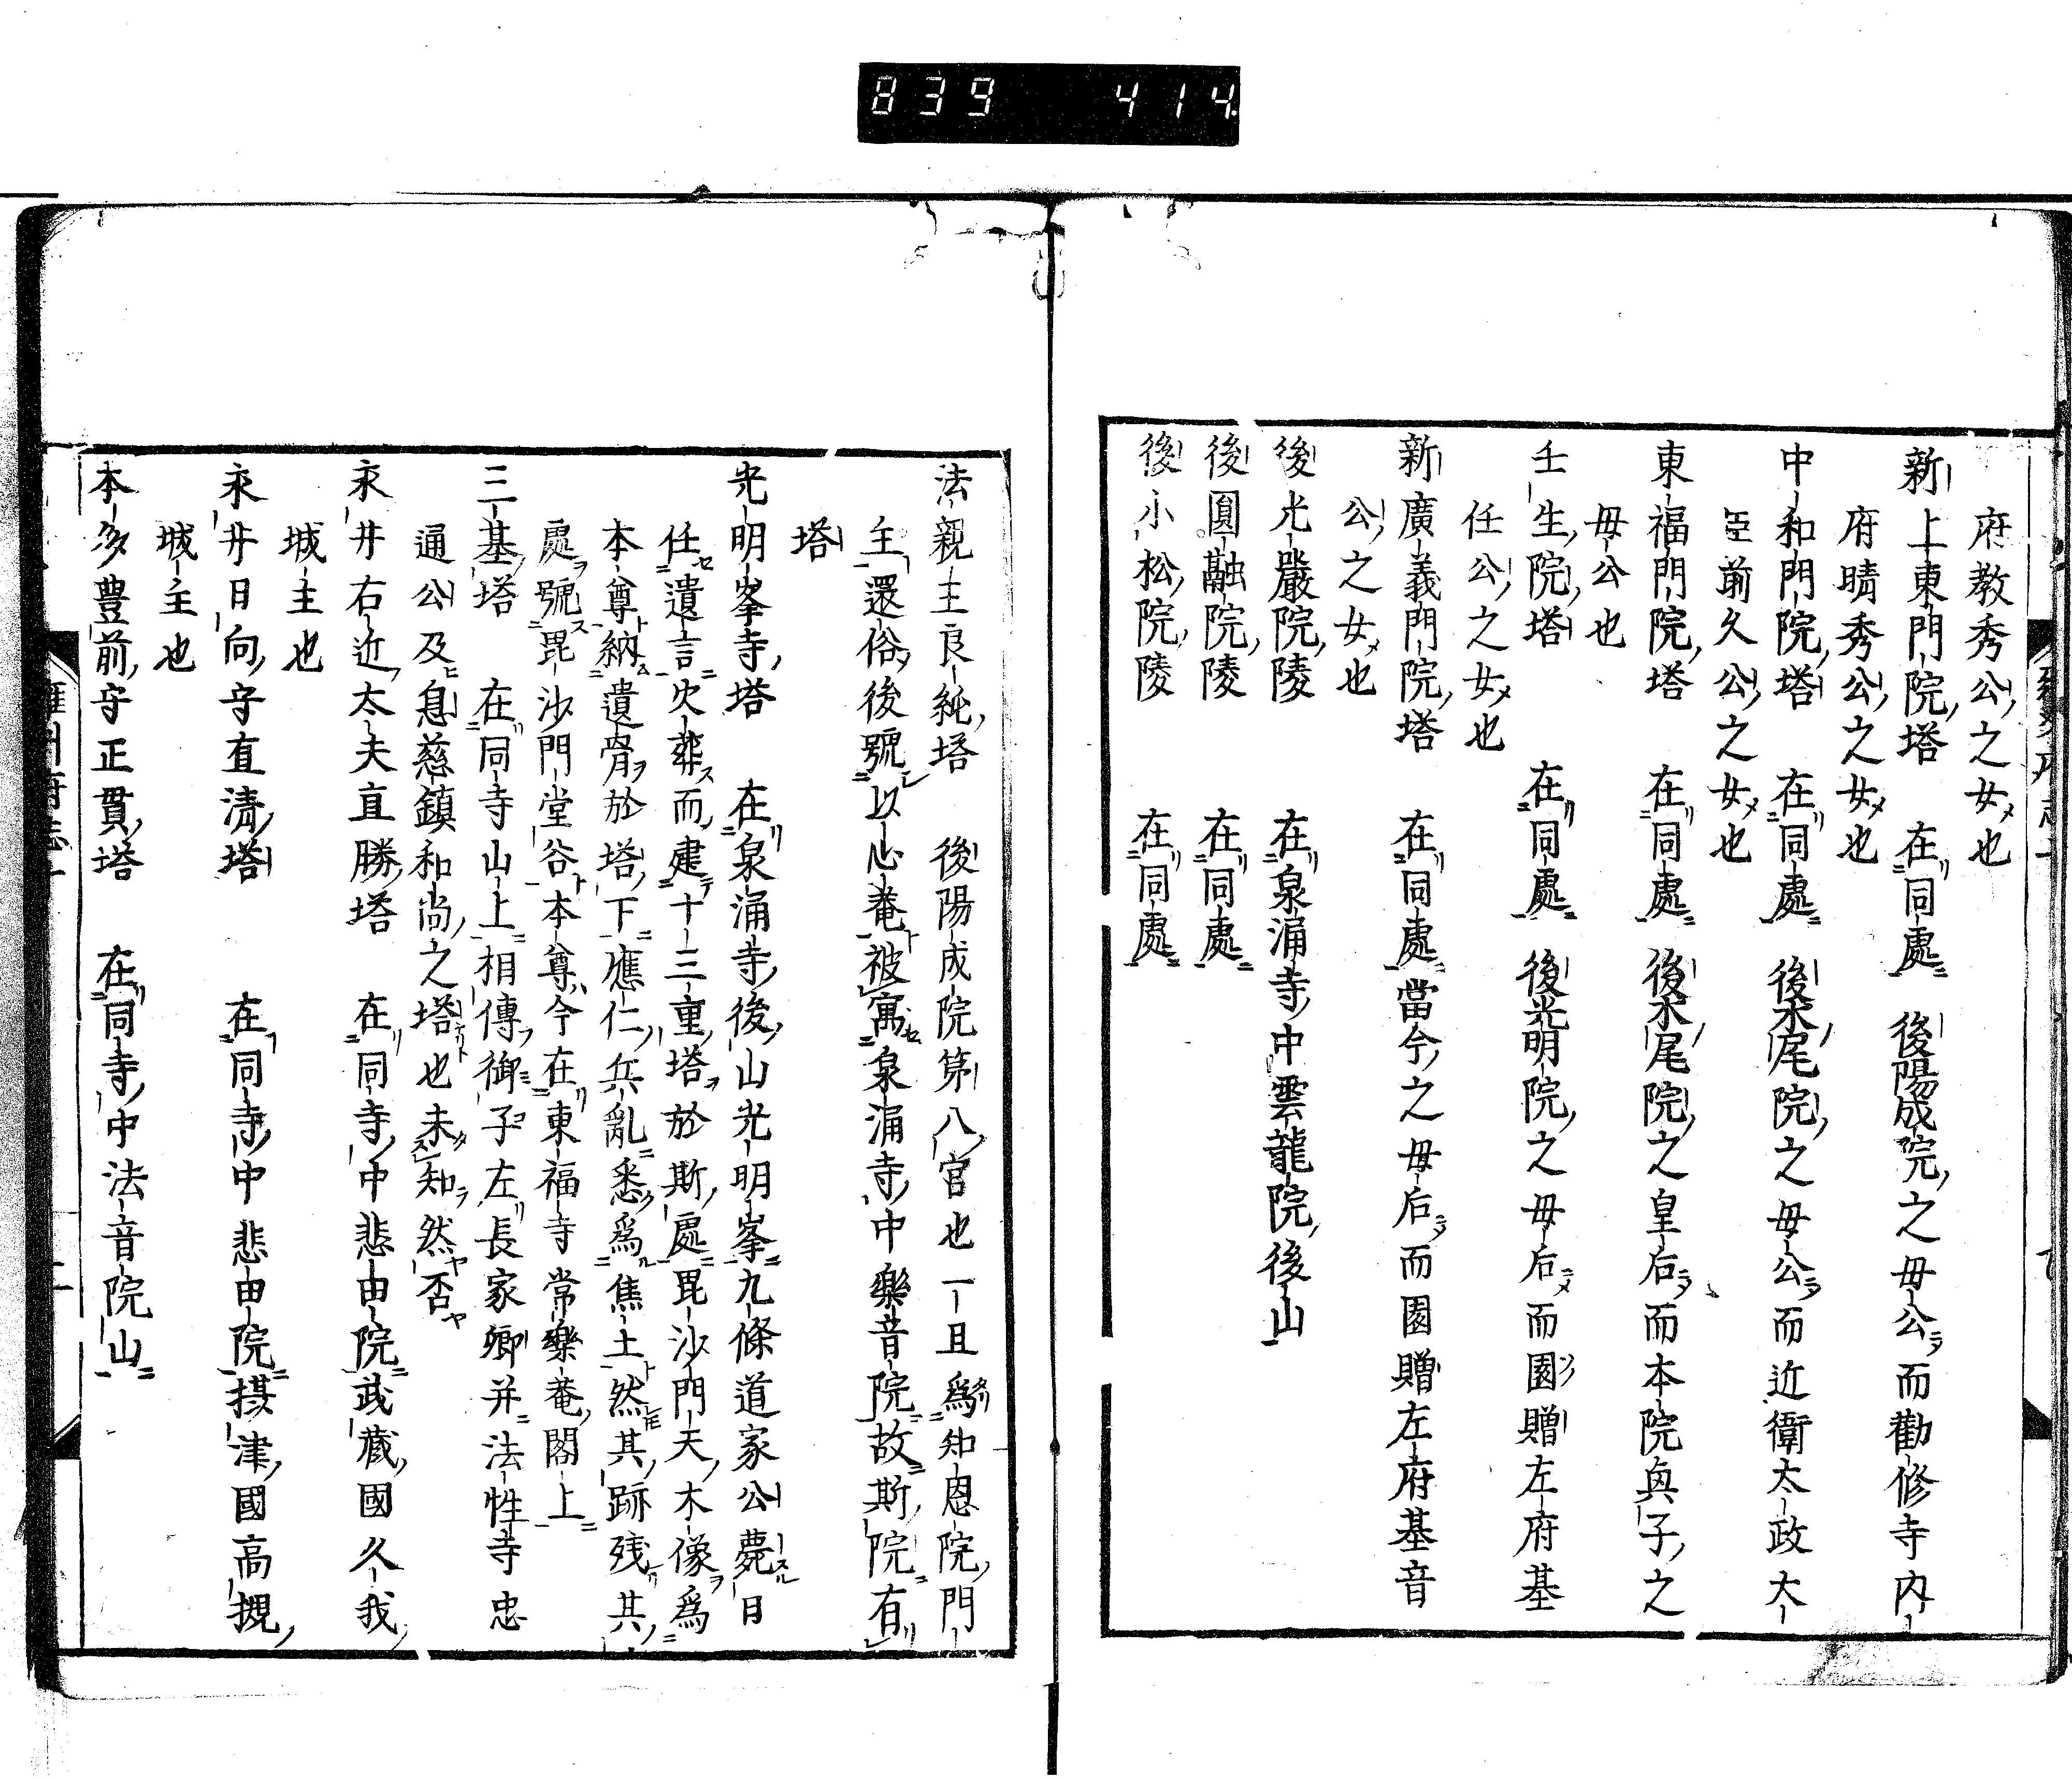 839 414
府教秀公之女也
新上東門院塔 在同處 後陽成院之母公而勸修寺内
府晴秀公之女也
中和門院塔 在同處 後水尾院之母公而近衛太政大
臣前久公之女也
東福門院塔 在同處 後水尾院之皇后而本院與子之
母公也
壬生院塔 在同處 後光明院之母后而園贈左府基
任公之女也
新廣義門院塔 在同處 當今之母后而園贈左府基音
公之女也
後光嚴院陵 在泉涌寺中雲龍院後山
後圓融院陵 在同處
後小松院陵 在同處
法親王良純塔 後陽成院第八宮也一旦爲知恩院門
主還俗後號以心菴被寓泉涌寺中樂音院故斯院有
塔
光明峯寺塔 在泉涌寺後山光明峯九條道家公薨日
任遺言火葬而建十三重塔於斯處毘沙門天木像爲
本尊納遺骨於塔下應仁兵亂悉爲焦土然其跡殘其
處號毘沙門堂谷本尊今在東福寺常樂菴閣上
三基塔 在同寺山上相傳御子左長家卿并法性寺忠
通公及息慈鎮和尚之塔也未知然否
永井右近太夫直勝塔 在同寺中悲田院武藏國久我
城主也
永井日向守直清塔 在同寺中悲田院摂津國高槻
城主也
本多豊前守正貫塔 在同寺中法音院山